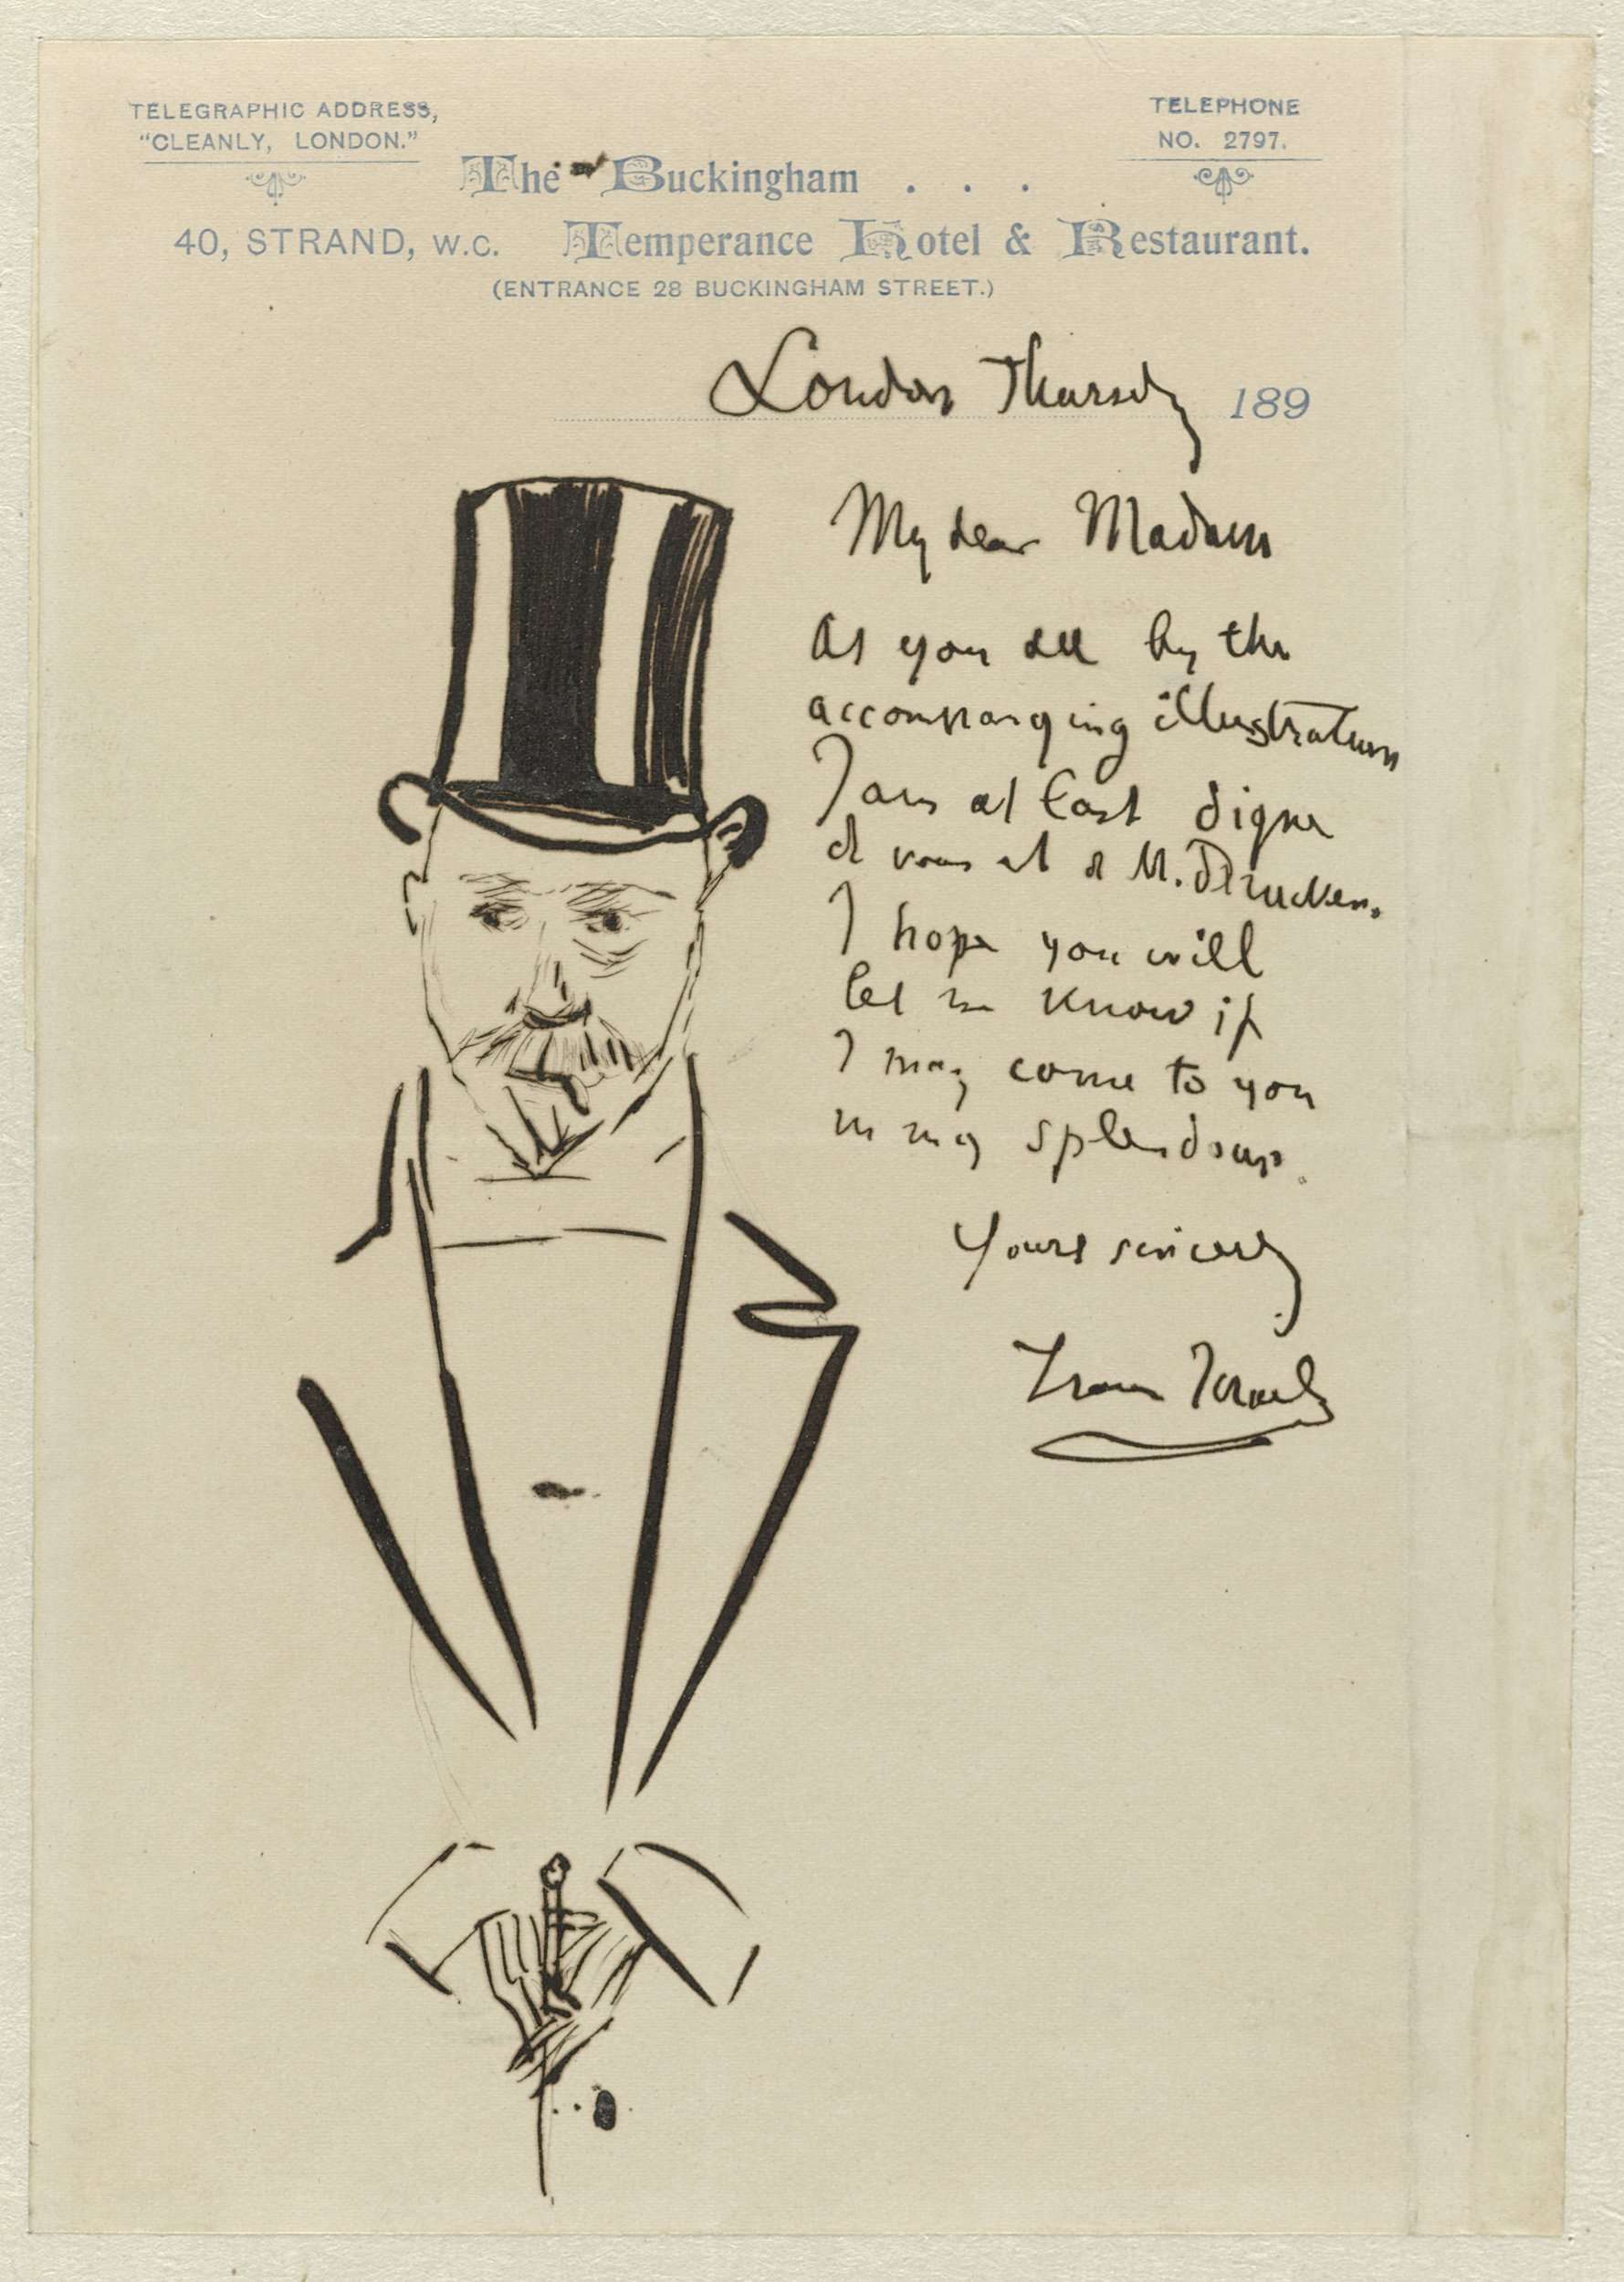 TELEGRAPHIC ADDRESS,
"CLEANLY, LONDON."
TELEPHONE
NO. 2797.
The Buckingham . . .
40, STRAND, W.C. Temperance Hotel & Restaurant.
(ENTRANCE 28 BUCKINGHAM STREET.)
London Thursdy 189
My dear Madam
As you see by the
accompanying illustration
I am at last digne
de vous et de M. Drucker.
I hope you will
let me know if
I may come to you
in my splendour.
Yours sincerely
Isaac Israels